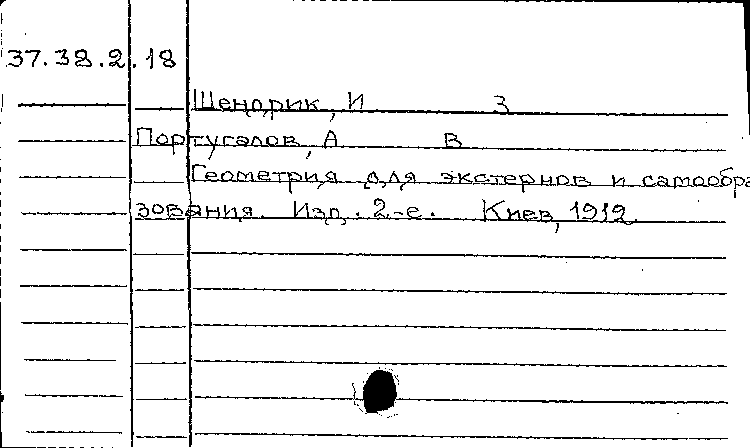 37.38.2.18
Шендрик, И З
Португалов, А В
Геометрия для экстернов и самообра
зования. Изд. 2-е. Киев, 1912.